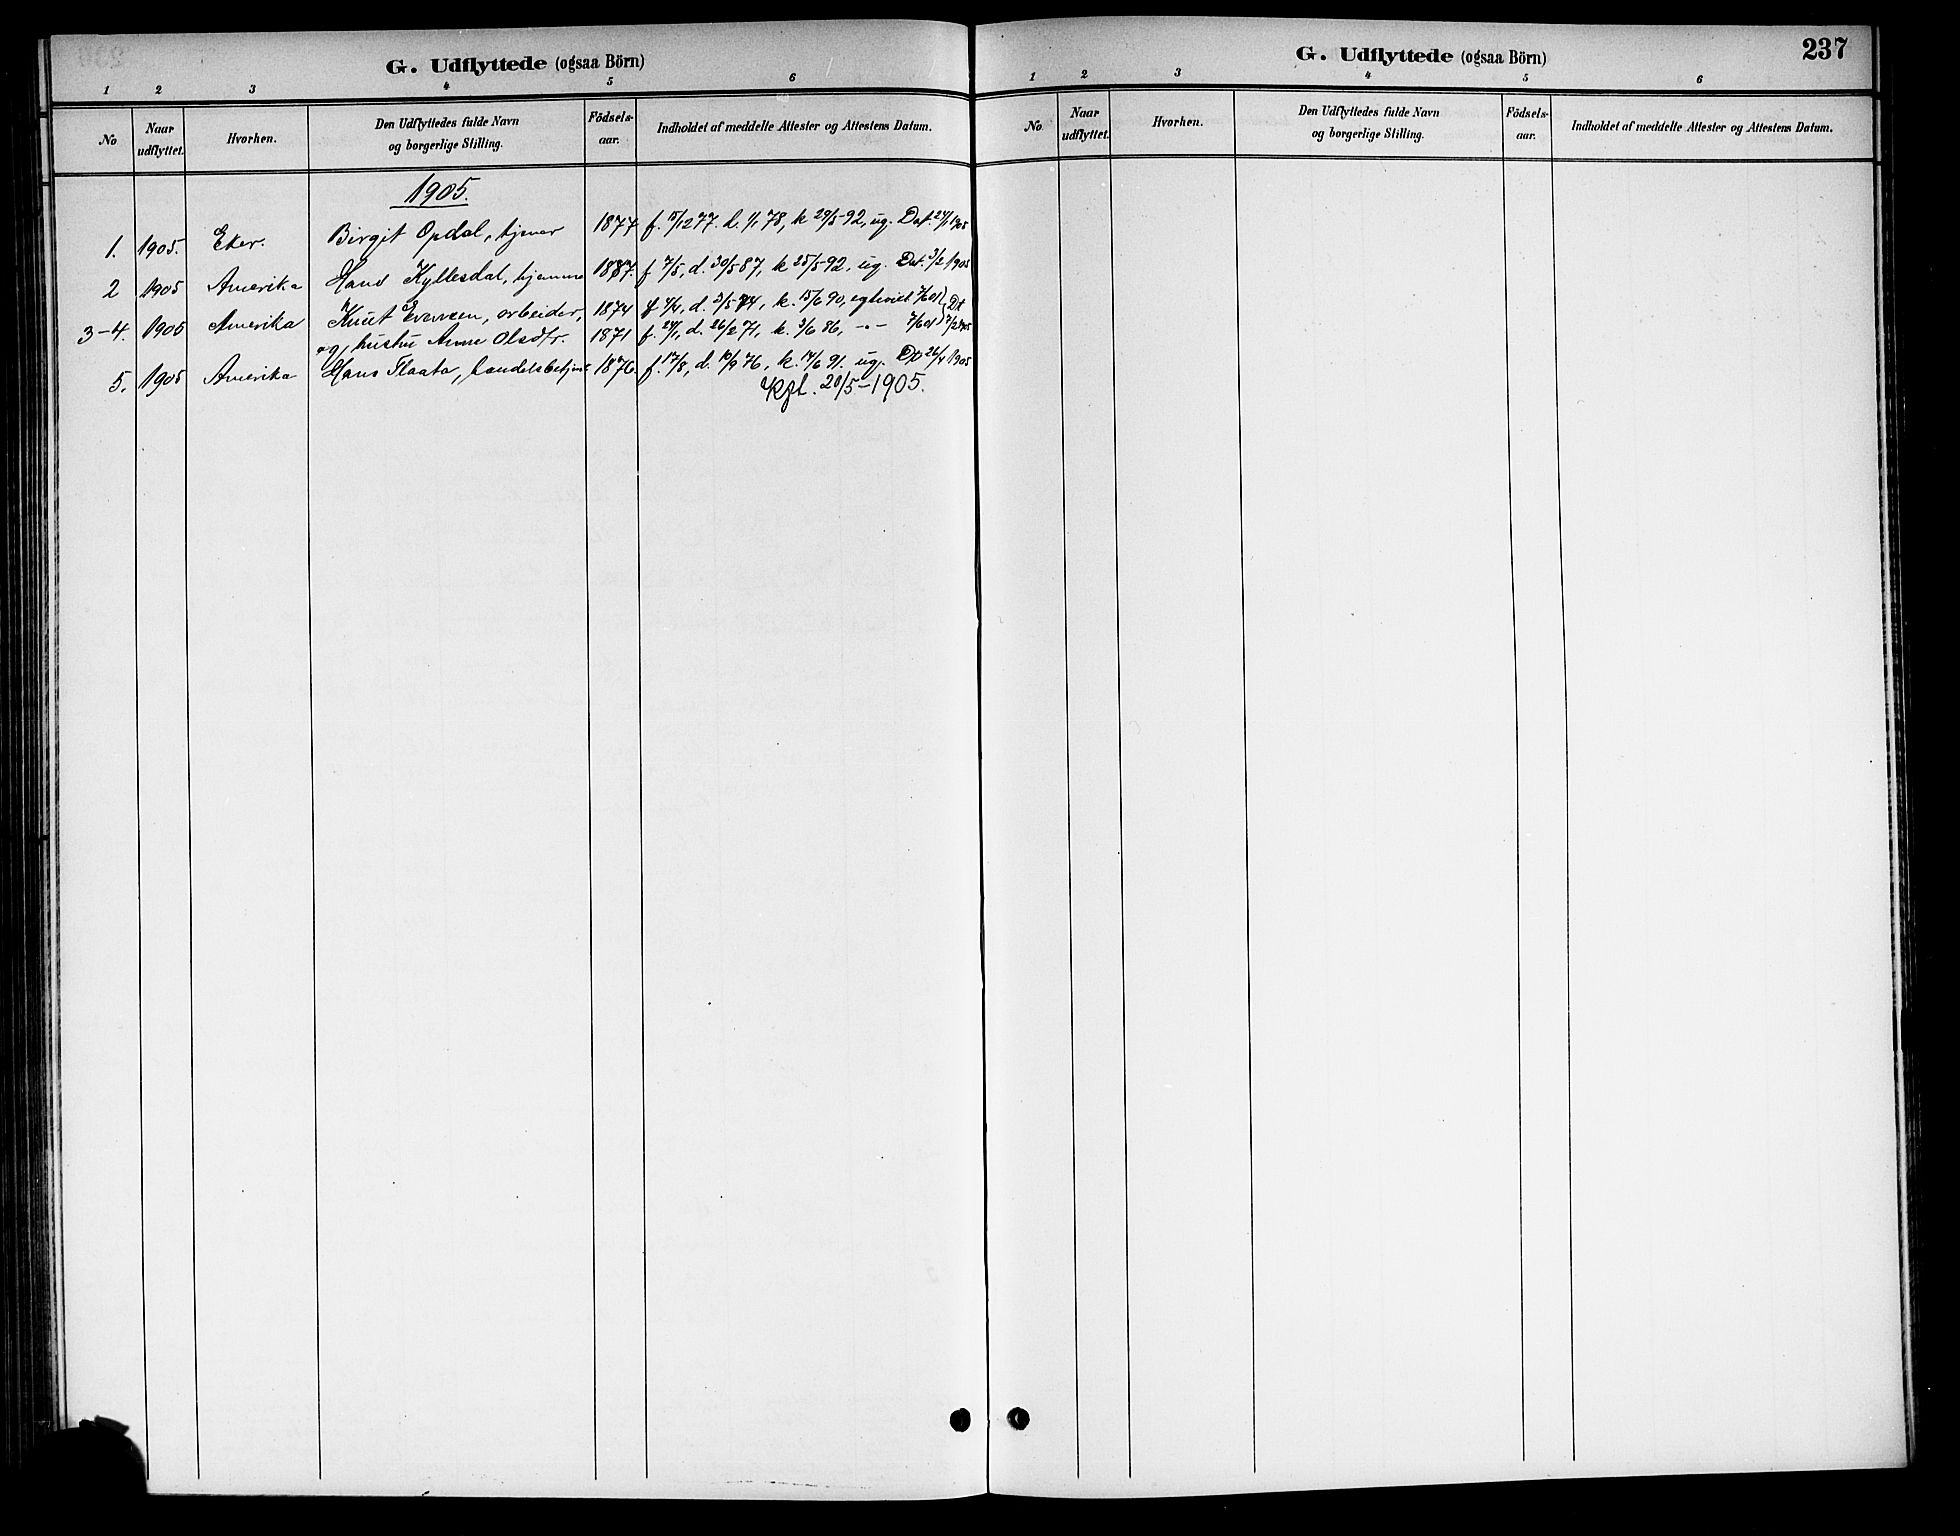 G. Udflyttede (ogsaa Börn)
1 2 3 4 5 6
No Naar udflyttet. Hvorhen. Den Udflyttedes fulde Navn og borgerlige Stilling. Födsels-aar. Indholdet af meddelte Attester og Attestens Datum.
1905.
1. 1905. Eker. Birgit Opdal, tjener 1877 f. 15/12 77. d. 1/1 78, k 29/5-92, ug. Dat. 24/1 1905
2 1905 Amerika Hans Kyllesdal, hjemme 1887. f 7/5, d. 30/5 87, k 25/5-92, ug. Dat. 3/2 1905
3-4. 1905 Amerika Knut Evensen, arbeider, 1874 f 4/4, d. 3/5 74, k. 15/6 90, egteviet 7/6 01 } Dt
og hustru Anne Olsdtr. 1871 f. 24/1, d. 26/2 71, k. 3/6 86, -"- 7/6 01 } 7/2 1905
5. 1905 Amerika Hans Flaata, handelsbetjent 1876. f. 17/8, d. 10/9 76, k. 14/6 91. ug. Dt 26/4 1905
Kfl. 20/5-1905.
G. Udflyttede (ogsaa Börn) 237
1 2 3 4 5 6
No Naar udflyttet. Hvorhen. Den Udflyttedes fulde Navn og borgerlige Stilling. Födsels-aar. Indholdet af meddelte Attester og Attestens Datum.